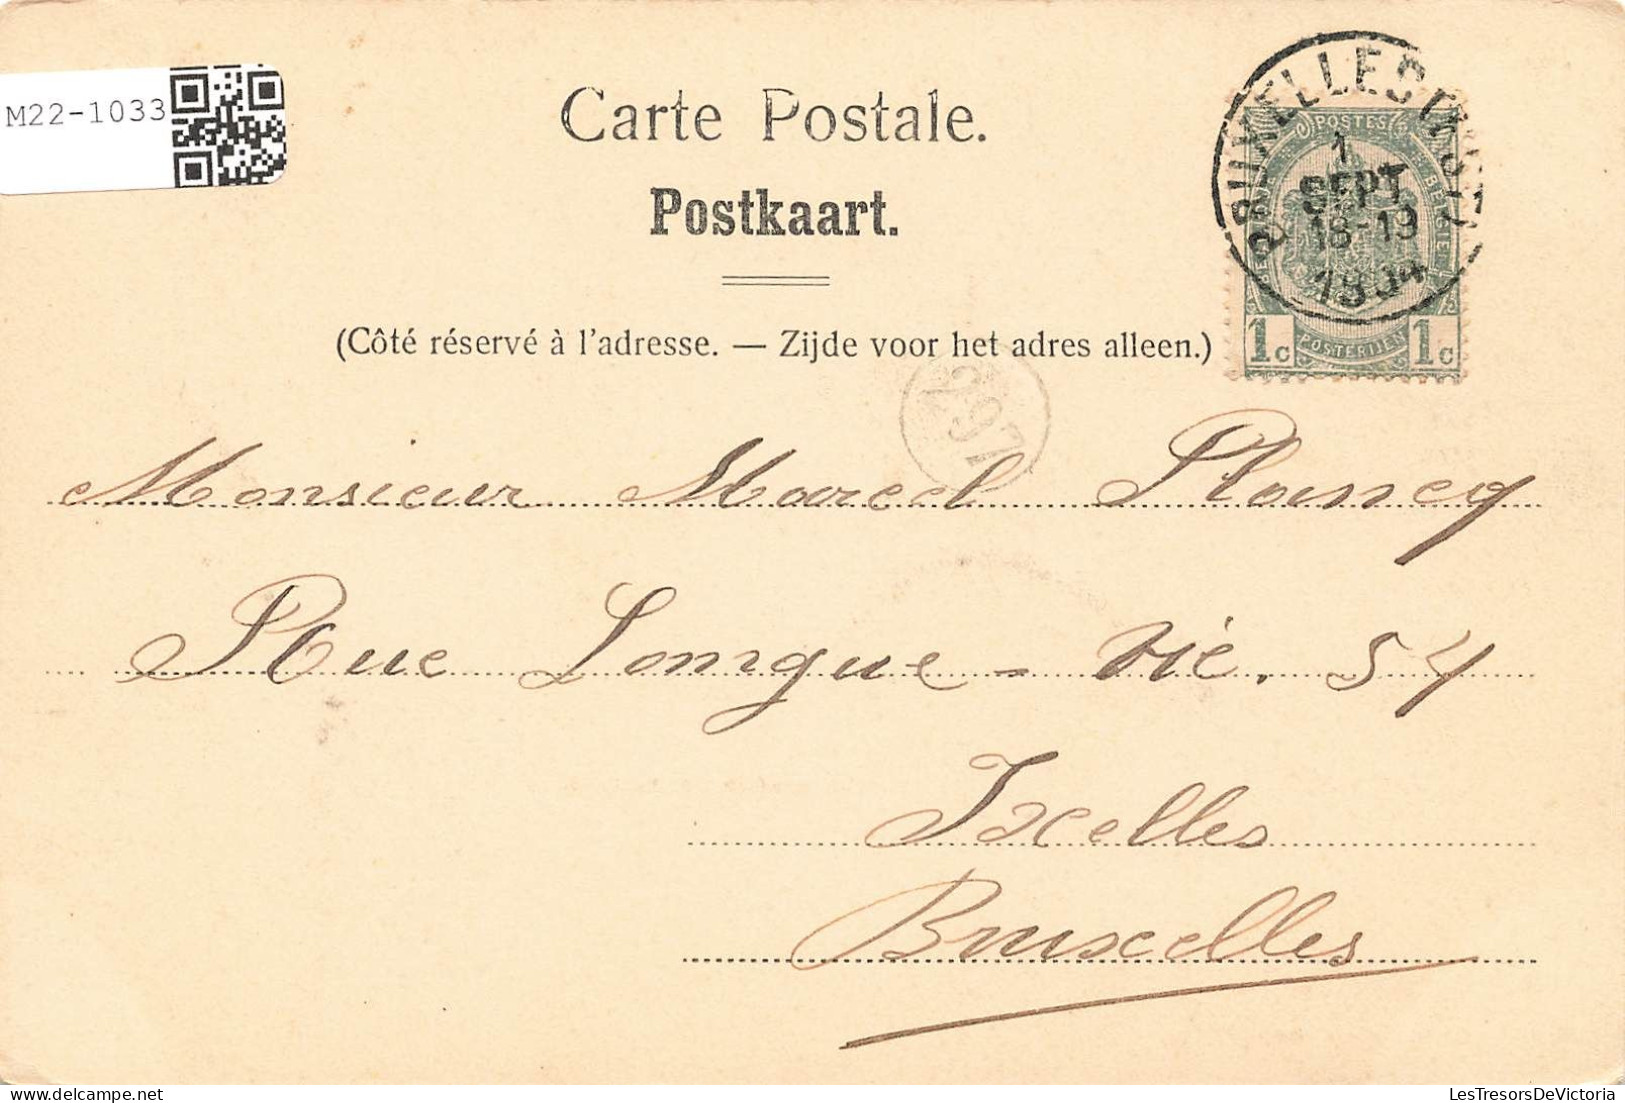 M22-1033
Carte Postale.
Postkaart.
(Côté réservé à l'adresse. — Zijde voor het adres alleen.)
BRUXELLES
1
SEPT
18-19
1904
POSTES
1c POSTERIJEN 1c
297
Monsieur Marcel Plancq
Rue Longue-vie. 54
Ixelles
Bruxelles
LesTresorsDeVictoria.com